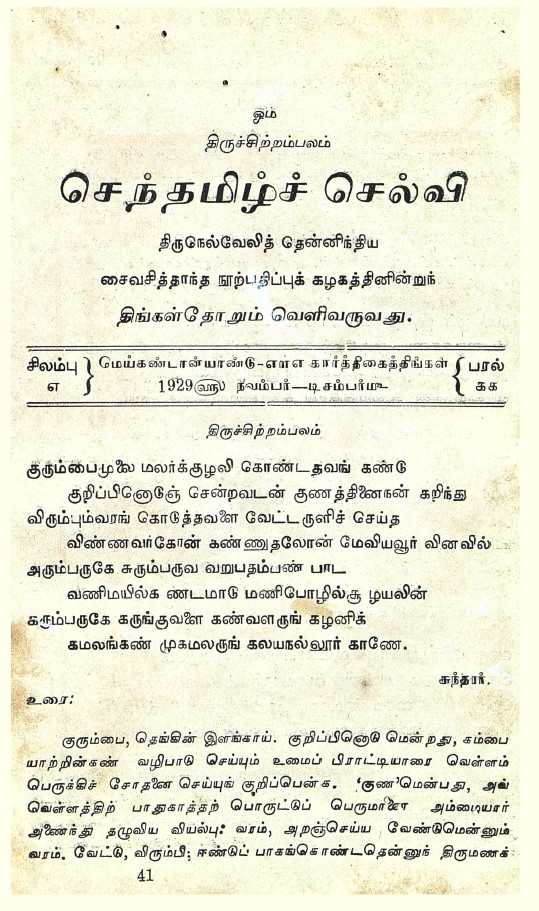 ஓம்
திருச்சிற்றம்பலம்
செந்தமிழ்ச் செல்வி
திருநெல்வேலித் தென்னிந்திய
சைவசித்தாந்த நூற்பதிப்புக் கழகத்தினின்றுந்
திங்கள்தோறும் வெளிவருவது.
சிலம்பு ௭ } மெய்கண்டான்யாண்டு-௭௭௭ கார்த்திகைத்திங்கள் { பரல் ௧௧
1929௵ நவம்பர்—டிசம்பர்௴
திருச்சிற்றம்பலம்
குரும்பைமுலை மலர்க்குழலி கொண்டதவங் கண்டு
குறிப்பினொடுஞ் சென்றவடன் குணத்தினைநன் கறிந்து
விரும்பும்வரங் கொடுத்தவளை வேட்டருளிச் செய்த
விண்ணவர்கோன் கண்ணுதலோன் மேவியவூர் வினவில்
அரும்பருகே சுரும்பருவ வறுபதம்பண் பாட
வணிமயில்க ணடமாடு மணிபொழில்சூ ழயலின்
கரும்பருகே கருங்குவளை கண்வளருங் கழனிக்
கமலங்கண் முகமலருங் கலயநல்லூர் காணே.
சுந்தரர்.
உரை:
குரும்பை, தெங்கின் இளங்காய். குறிப்பினொடு மென்றது, கம்பை
யாற்றின்கண் வழிபாடு செய்யும் உமைப் பிராட்டியாரை வெள்ளம்
பெருக்கிச் சோதனை செய்யுங் குறிப்பென்க. ‘குண’மென்பது, அவ்
வெள்ளத்திற் பாதுகாத்தற் பொருட்டுப் பெருமானை அம்மையார்
அணைந்து தழுவிய வியல்பு: வரம், அறஞ்செய்ய வேண்டுமென்னும்
வரம். வேட்டு, விரும்பி; ஈண்டுப் பாகங்கொண்டதென்னுந் திருமணக்
41